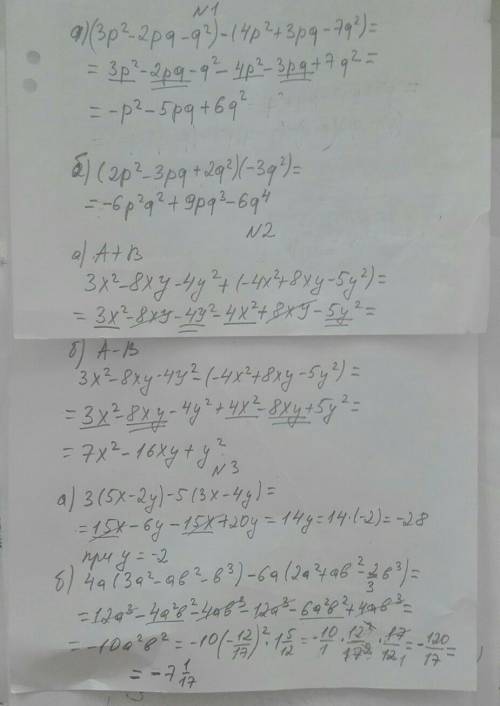 N1
а) (3p²-2pq-q²)-(4p²+3pq-7q²)=
= 3p²-2pq-q²-4p²-3pq+7q²=
= -p²-5pq+6q²
б) (2p²-3pq+2q²)(-3q²)=
= -6p²q²+9pq³-6q⁴
N2
а) A+B
3x²-8xy-4y²+(-4x²+8xy-5y²)=
= 3x²-8xy-4y²-4x²+8xy-5y²=
б) A-B
3x²-8xy-4y²-(-4x²+8xy-5y²)=
= 3x²-8xy-4y²+4x²-8xy+5y²=
= 7x²-16xy+y²
N3
а) 3(5x-2y)-5(3x-4y)=
= 15x-6y-15x+20y=14y=14·(-2)=-28
при y=-2
б) 4a(3a²-ab²-b³)-6a(2a²+ab²-2/3b³)=
= 12a³-4a²b²-4ab³-12a³-6a²b²+4ab³=
= -10a²b²=-10(-12/17)²·1 5/12=-10/1·12²/17²·17/12=-120/17=
= -7 1/17